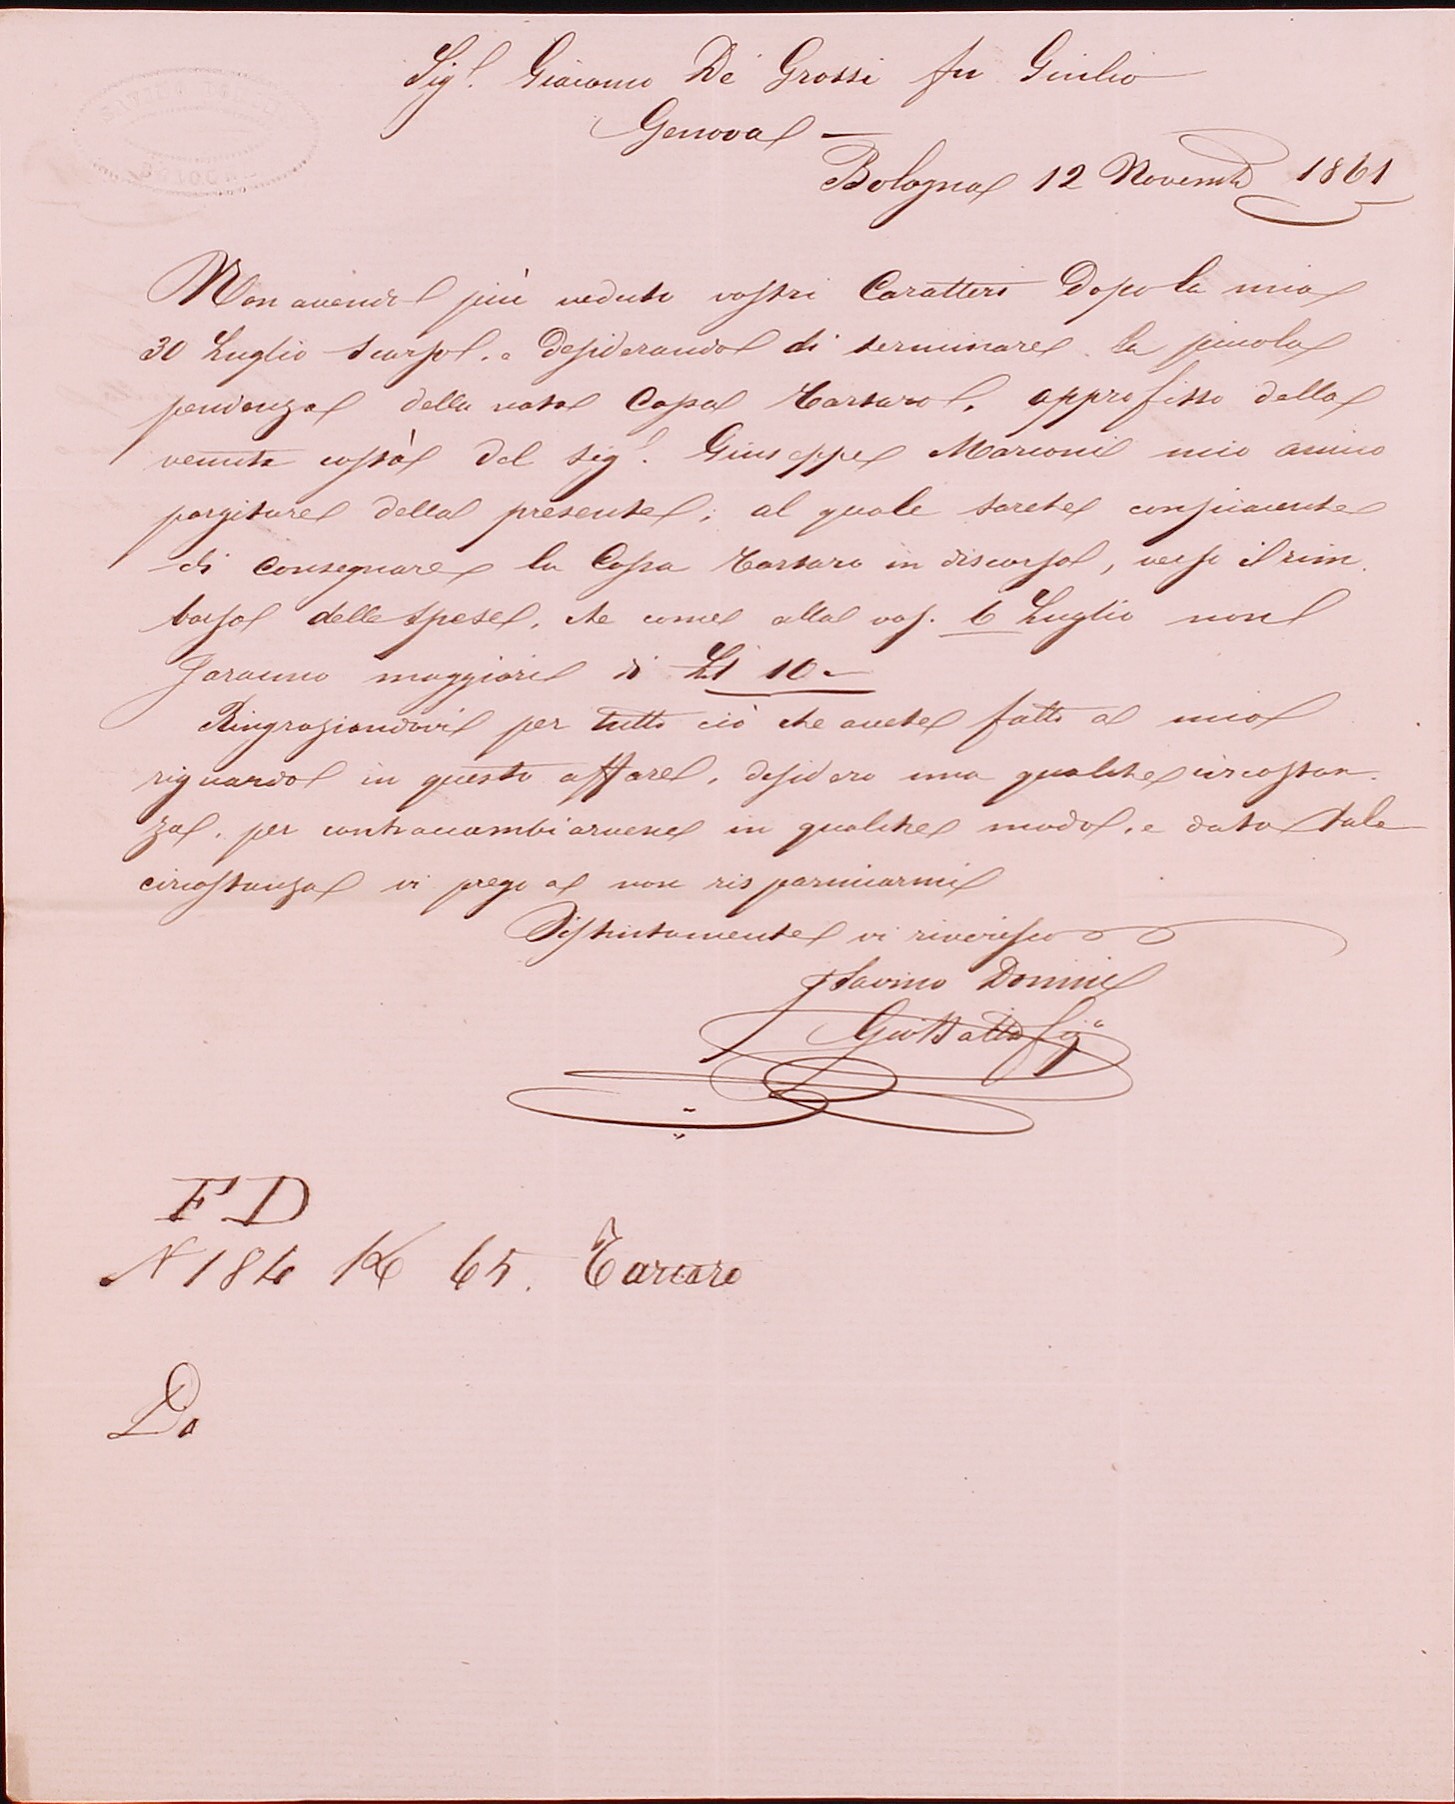 Sig.r Giacomo De Grossi fu Giulio
Genova —
Bologna 12 Novemb 1861
Non avendo più veduto vostri Caratteri Dopo la mia
30 Luglio scorso, e desiderando di terminare la piccola
pendenza della nota Cassa Tartaro, approfitto della
venuta costà del Sig.r Giuseppe Marconi mio amico
porgitore della presente; al quale sarete compiacente
di Consegnare la Cassa Tartaro in discorso, verso il rim
borso delle spese, che come alla vos. 6 Luglio non
saranno maggiori di Lt 10 —
Ringraziandovi per tutto ciò che avete fatto a mio
riguardo in questo affare, desidero una qualche circostan
za, per contraccambiarvene in qualche modo, e data tale
circostanza vi prego a non risparmiarmi
Distintamente vi riverisco
Flavino Donini
Gio Batta fig.o
FD
N 184 K 65. Tartaro